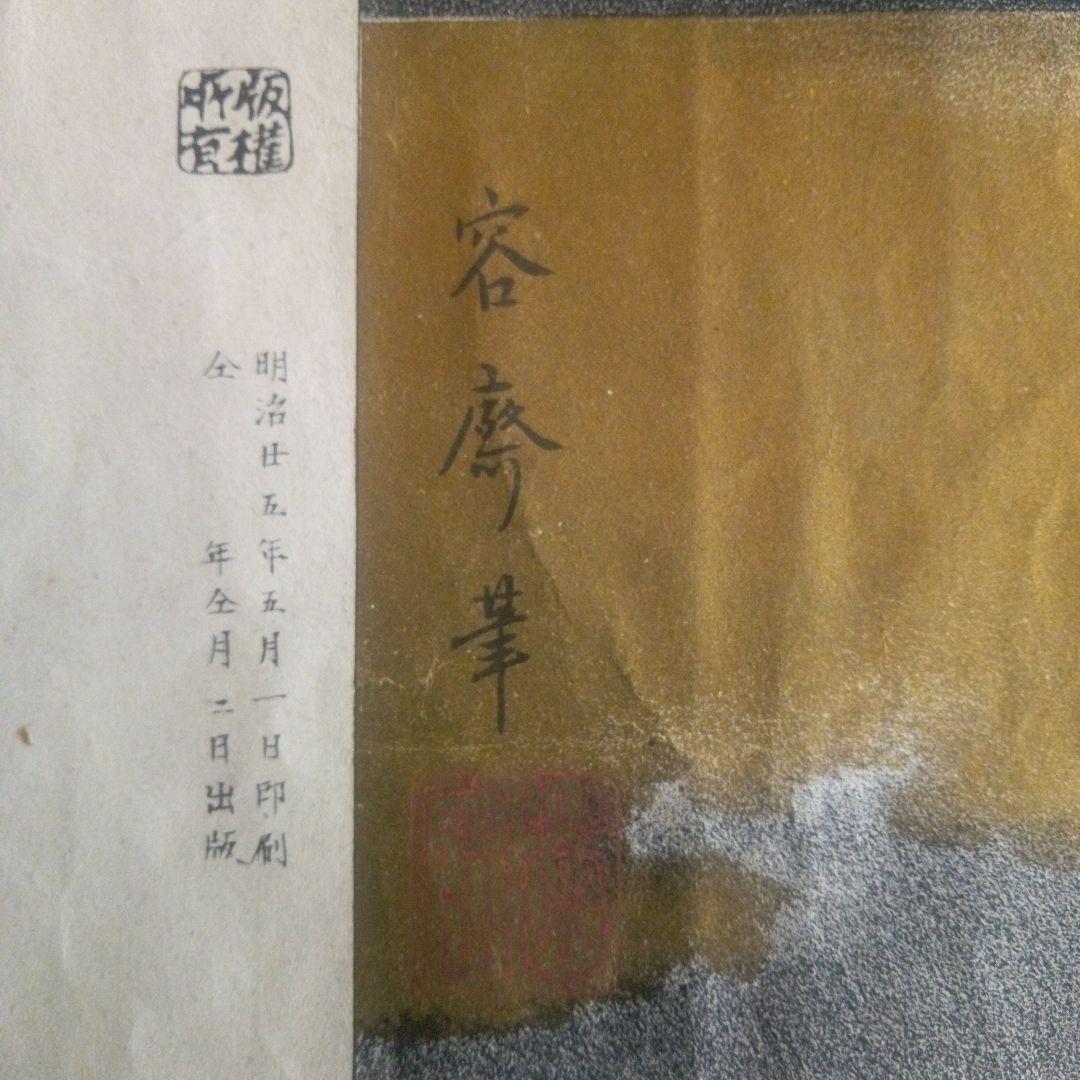 容齋筆
版權
所有
明治廿五年五月一日印刷
仝 年仝月二日出版